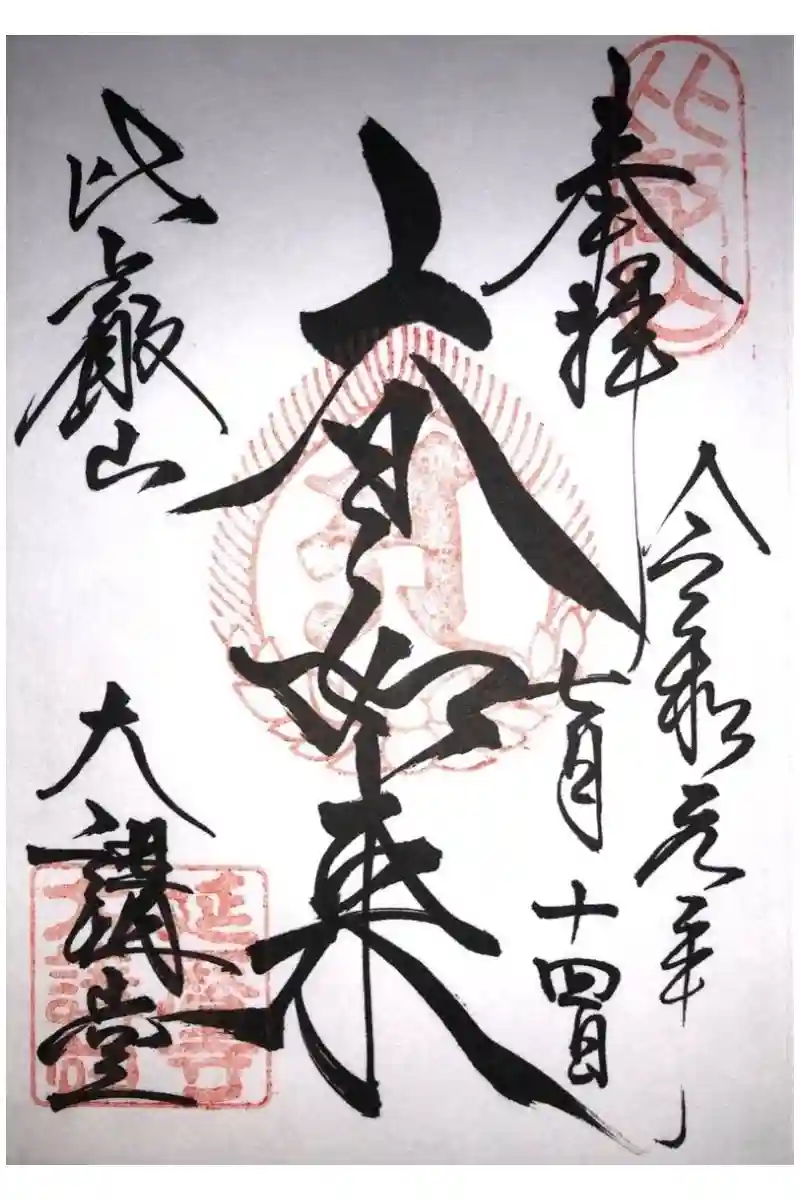 奉拝
令和元年
七月十四日
大日如来
比叡山
大講堂
比叡山
延暦寺
大講堂